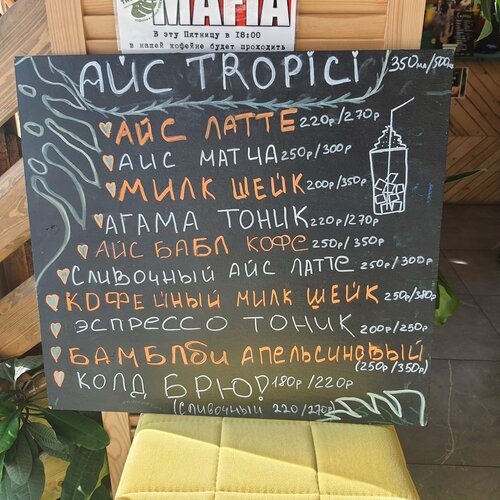 MAFIA
В эту Пятницу в 18:00
в нашей кофейне будет проходить
АЙС TROPICI 350мл/500мл
АЙС ЛАТТЕ 220р/270р
АЙС МАТЧА 250р/300р
МИЛК ШЕЙК 200р/350р
АГАМА ТОНИК 220р/270р
АЙС БАБЛ КОФЕ 250р/350р
СЛИВОЧНЫЙ АЙС ЛАТТЕ 250р/300р
КОФЕЙНЫЙ МИЛК ШЕЙК 250р/380р
ЭСПРЕССО ТОНИК 200р/250р
БАМБЛБИ АПЕЛЬСИНОВЫЙ
(250р/350р)
КОЛД БРЮ! 180р/220р
(СЛИВОЧНЫЙ 220/270р)